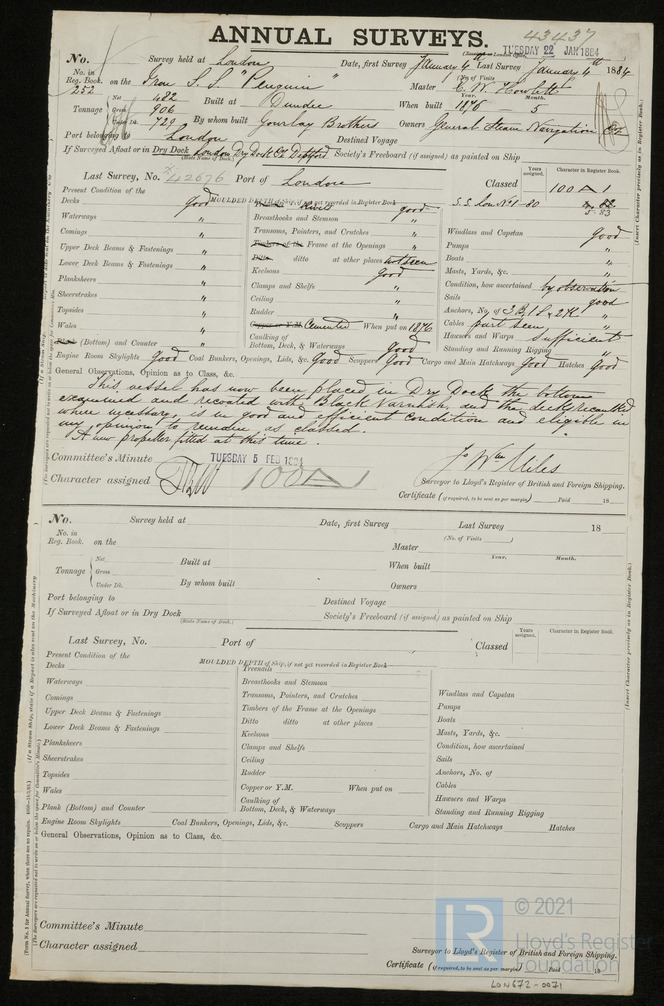 43437
ANNUAL SURVEYS.
TUESDAY 22 JAN 1884
No. Survey held at London Date, first Survey January 4th Last Survey January 4th 1884
(No. of Visits)
No. in Reg. Book. 252 on the Iron S.S. "Penguin" Master C. W. Howlett
Net 482
Tonnage Gross 906 Built at Dundee When built 1876 Year. 5 Month.
Under Dk. 729 By whom built Gourlay Brothers Owners General Steam Navigation Co.
Port belonging to London Destined Voyage
If Surveyed Afloat or in Dry Dock London Dry Dock Co Deptford Society's Freeboard (if assigned) as painted on Ship
(State Name of Dock.)
Last Survey, No. 42676 Port of London Classed Years assigned. Character in Register Book. 100 A 1
S.S. Lon. No 1-80
5-83
Present Condition of the
MOULDED DEPTH of Ship, if not yet recorded in Register Book
Decks good Rivets good
Waterways " Breasthooks and Stemson "
Comings " Transoms, Pointers, and Crutches " Windlass and Capstan good
Upper Deck Beams & Fastenings " Timbers of the Frame at the Openings " Pumps "
Lower Deck Beams & Fastenings " Ditto ditto at other places not seen Boats "
Planksheers " Keelsons good Masts, Yards, &c. "
Sheerstrakes " Clamps and Shelfs " Condition, how ascertained by observation
Topsides " Ceiling " Sails good
Wales " Rudder " Anchors, No. of 3B, 1S, & 2K
Copper or Y.M. Cemented When put on 1876 Cables part seen
(Bottom) and Counter " Caulking of Bottom, Deck, & Waterways good Hawsers and Warps sufficient
Standing and Running Rigging "
Engine Room Skylights good Coal Bunkers, Openings, Lids, &c. good Scuppers good Cargo and Main Hatchways good Hatches good
General Observations, Opinion as to Class, &c.
This vessel has now been placed in Dry Dock the bottom
examined and recoated with Black Varnish, and the decks recaulked
where necessary, is in good and efficient condition and eligible in
my opinion to remain as classed.
A new propeller fitted at this time.
Committee's Minute TUESDAY 5 FEB 1884
Character assigned 100 A 1
Jo Wm Miles
Surveyor to Lloyd's Register of British and Foreign Shipping.
Certificate (if required, to be sent as per margin) Paid 18
No. Survey held at Date, first Survey Last Survey 18
(No. of Visits)
No. in Reg. Book. on the Master
Net
Tonnage Gross Built at When built Year. Month.
Under Dk. By whom built Owners
Port belonging to Destined Voyage
If Surveyed Afloat or in Dry Dock Society's Freeboard (if assigned) as painted on Ship
(State Name of Dock.)
Last Survey, No. Port of Classed Years assigned. Character in Register Book.
Present Condition of the
MOULDED DEPTH of Ship, if not yet recorded in Register Book
Decks Treenails
Waterways Breasthooks and Stemson
Comings Transoms, Pointers, and Crutches Windlass and Capstan
Upper Deck Beams & Fastenings Timbers of the Frame at the Openings Pumps
Lower Deck Beams & Fastenings Ditto ditto at other places Boats
Planksheers Keelsons Masts, Yards, &c.
Sheerstrakes Clamps and Shelfs Condition, how ascertained
Topsides Ceiling Sails
Wales Rudder Anchors, No. of
Copper or Y.M. When put on Cables
Plank (Bottom) and Counter Caulking of Bottom, Deck, & Waterways Hawsers and Warps
Standing and Running Rigging
Engine Room Skylights Coal Bunkers, Openings, Lids, &c. Scuppers Cargo and Main Hatchways Hatches
General Observations, Opinion as to Class, &c.
Committee's Minute
Character assigned
Surveyor to Lloyd's Register of British and Foreign Shipping.
Certificate (if required, to be sent as per margin) Paid 18
(Insert Character precisely as in Register Book.)
(Insert Character precisely as in Register Book.)
LR © 2021
Lloyd's Register
Foundation
LON672-0071